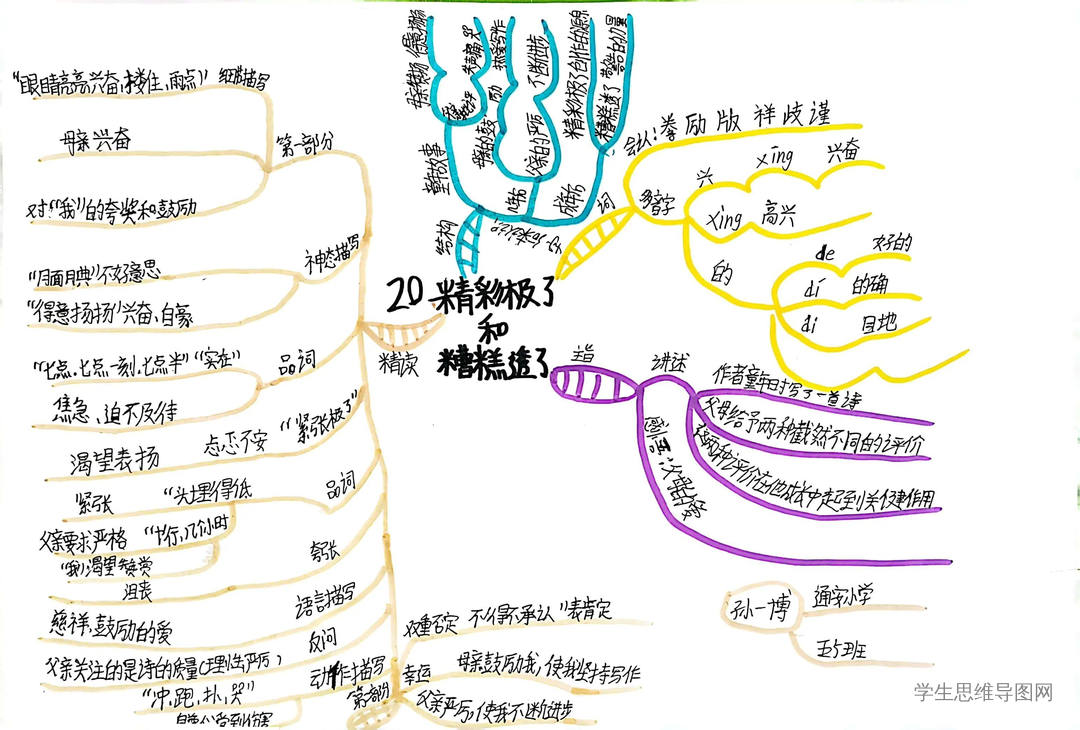 20 精彩极了
和
糟糕透了
精读
第一部分
"眼睛亮亮兴奋，搂住，雨点" 细节描写
母亲兴奋
对"我"的夸奖和鼓励
神态描写
"月面月典"不好意思
"得意扬扬"兴奋、自豪
品词
"七点、七点一刻、七点半" "实在"
焦急、迫不及待
"紧张极了"
忐忑不安
渴望表扬
品词
"头埋得低
紧张
"十行、几个小时
父亲要求严格
夸张
"我"渴望赞赏
沮丧
语言描写
慈祥、鼓励的爱
反问
父亲关注的是诗的质量(理性严厉)
动作描写
"冲、跑、扑、哭"
自尊心受到伤害
第二部分
双重否定 不得不承认"表肯定
幸运
母亲鼓励我，使我坚持写作
父亲严厉，使我不断进步
结构
童年故事
母亲表扬 得意扬扬
父亲批评
母亲的鼓励
热爱写作
父亲的严厉
不断进步
精彩极了 创作的源泉
糟糕透了 警告的力量
词
会认：誊励版祥歧谨
多音字
兴
xìng 兴奋
xìng 高兴
的
de 好的
dí 的确
dì 目地
主旨
讲述
作者童年时写了一首诗
父母给予两种截然不同的评价
这两种评价在他成长中起到关键作用
孙一博
通宇小学
五5班
学生思维导图网